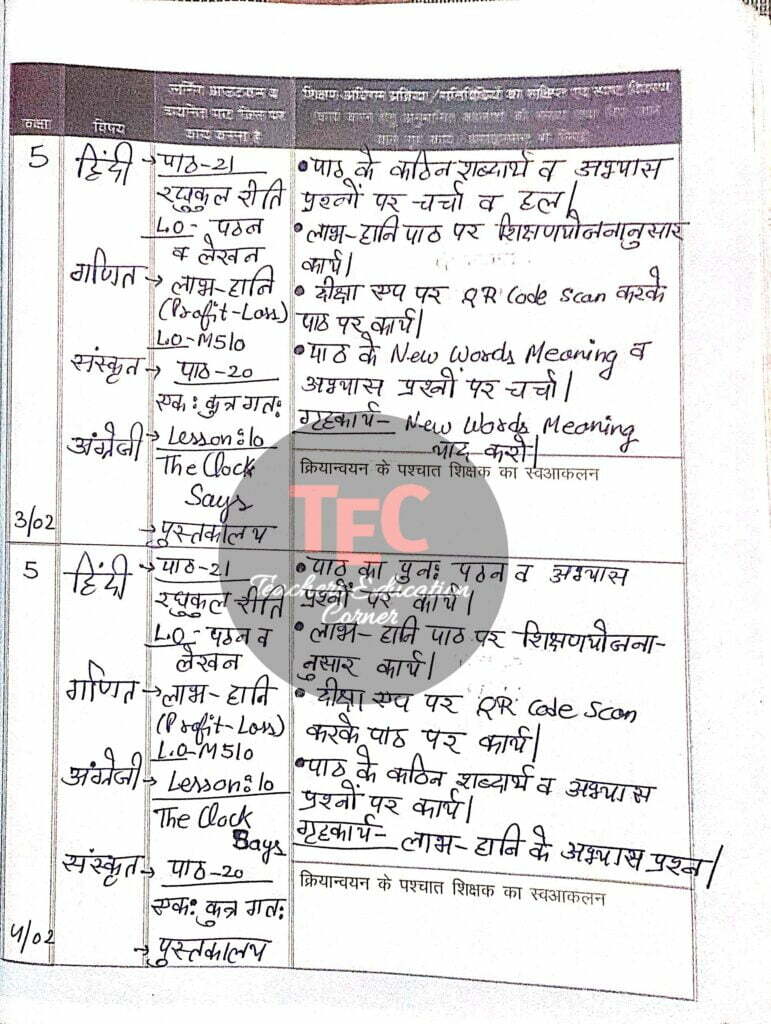 कक्षा
विषय
शिक्षण अधिगम प्रक्रिया/गतिविधियों का संक्षिप्त एवं स्पष्ट विवरण
कार्य करना है
5
हिंदी → पाठ-21
रघुकुल रीति
L.O- पठन
व लेखन
गणित → लाभ-हानि
(Profit-Loss)
L.O-M510
संस्कृत → पाठ-20
एक: कुत्र गत:
अंग्रेजी → Lesson:10
The Clock
Says
3/02
→ पुस्तकालय
• पाठ के कठिन शब्दार्थ व अभ्यास
प्रश्नों पर चर्चा व हल।
• लाभ-हानि पाठ पर शिक्षणयोजनानुसार
कार्य।
• दीक्षा एप पर QR Code Scan करके
पाठ पर कार्य।
• पाठ के New Words Meaning व
अभ्यास प्रश्नों पर चर्चा।
गृहकार्य- New Words Meaning
याद करो।
क्रियान्वयन के पश्चात शिक्षक का स्वआकलन
TEC
Teachers Education
Corner
5
हिंदी → पाठ-21
रघुकुल रीति
L.O- पठन व
लेखन
गणित → लाभ-हानि
(Profit-Loss)
L.O-M510
अंग्रेजी → Lesson:10
The Clock
Says
संस्कृत → पाठ-20
एक: कुत्र गत:
4/02
→ पुस्तकालय
• पाठ का पुन: पठन व अभ्यास
प्रश्नों पर कार्य।
• लाभ-हानि पाठ पर शिक्षणयोजना-
नुसार कार्य।
• दीक्षा एप पर QR Code Scan
करके पाठ पर कार्य।
• पाठ के कठिन शब्दार्थ व अभ्यास
प्रश्नों पर कार्य।
गृहकार्य- लाभ-हानि के अभ्यास प्रश्न।
क्रियान्वयन के पश्चात शिक्षक का स्वआकलन